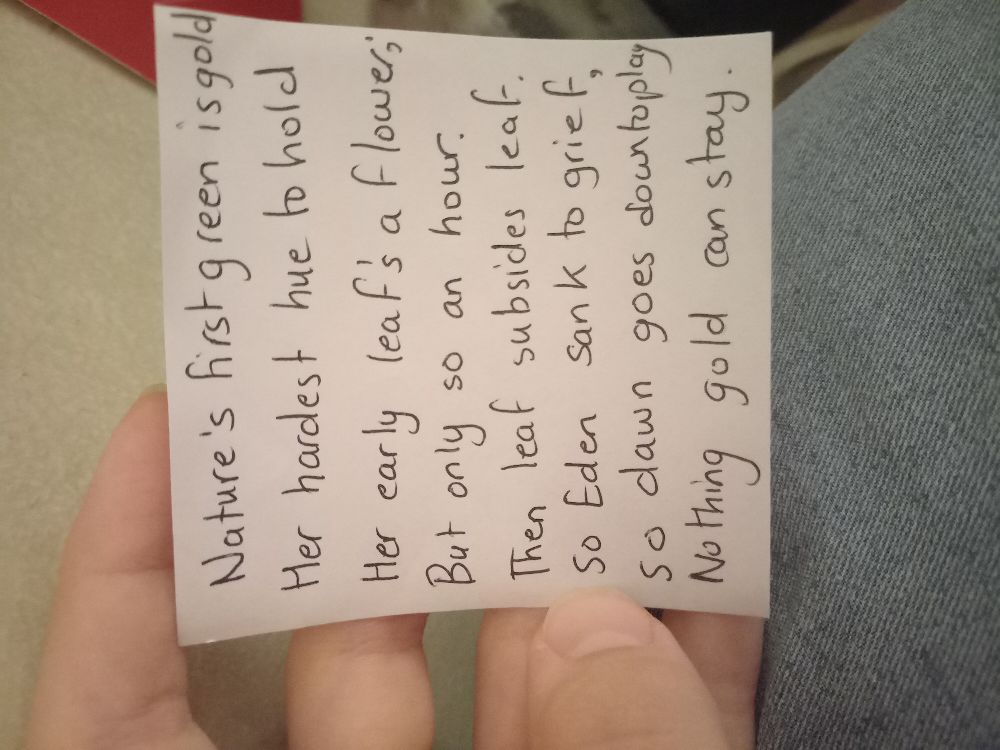 Nature's first green is gold
Her hardest hue to hold
Her early leaf's a flower;
But only so an hour.
Then leaf subsides leaf.
So Eden sank to grief,
So dawn goes downtoplay
Nothing gold can stay.